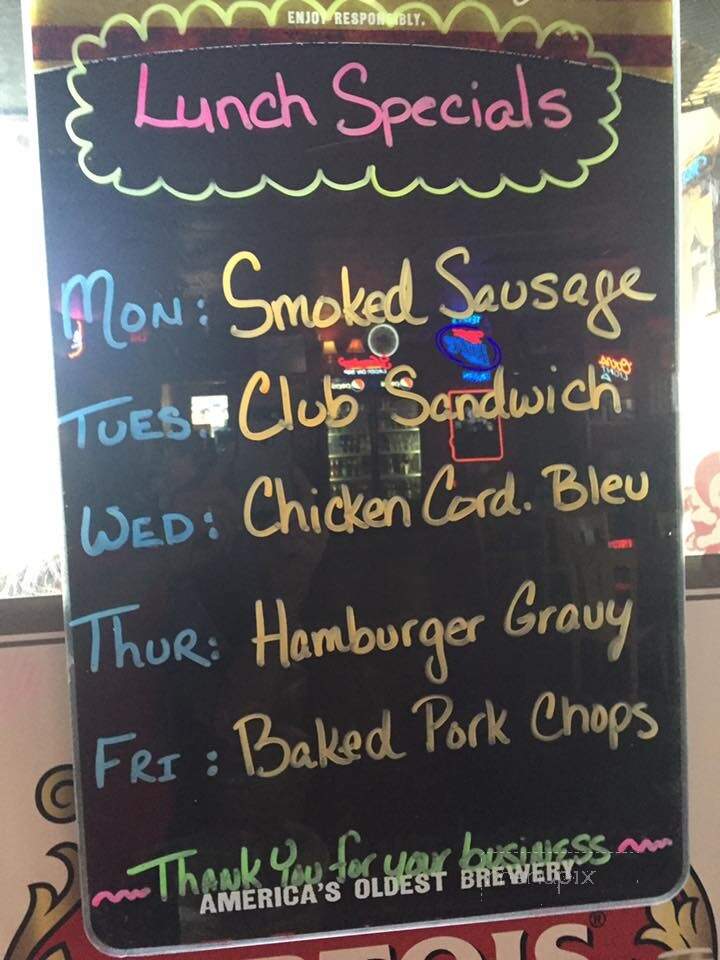 ENJOY RESPONSIBLY.
Lunch Specials
MON: Smoked Sausage
TUES: Club Sandwich
WED: Chicken Cord. Bleu
THUR: Hamburger Gravy
FRI: Baked Pork Chops
Thank You for your business
AMERICA'S OLDEST BREWERY